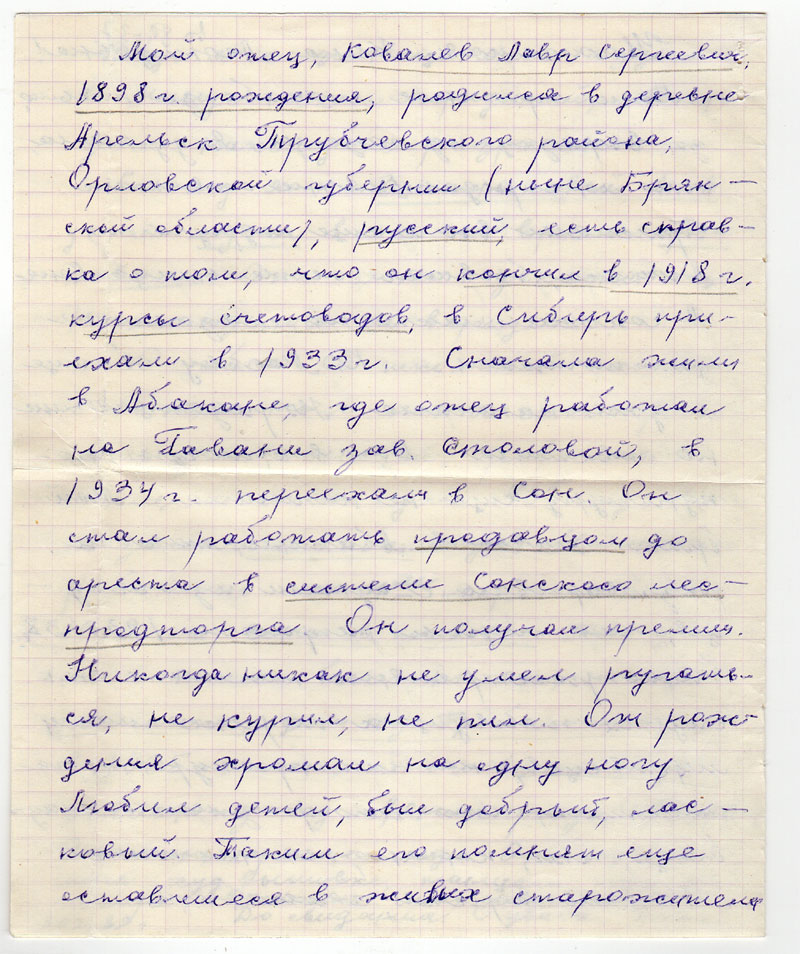 Мой отец, Ковалев Лавр Сергеевич,
1898 г. рождения, родился в деревне
Арельск Трубчевского района,
Орловской губернии (ныне Брян-
ской области), русский, есть справ-
ка о том, что он кончил в 1918 г.
курсы счетоводов, в Сибирь при-
ехали в 1933 г. Сначала жили
в Абакане, где отец работал
на Гавани зав. столовой, в
1934 г. переехали в Сон. Он
стал работать продавцом до
ареста в системе Сонского лес-
продторга Он получал премии.
Никогда никак не умел ругать-
ся, не курил, не пил. От рож-
дения хромал на одну ногу
Любил детей, был добрый, лас-
ковый. Таким его помнят еще
оставшиеся в живых старожители